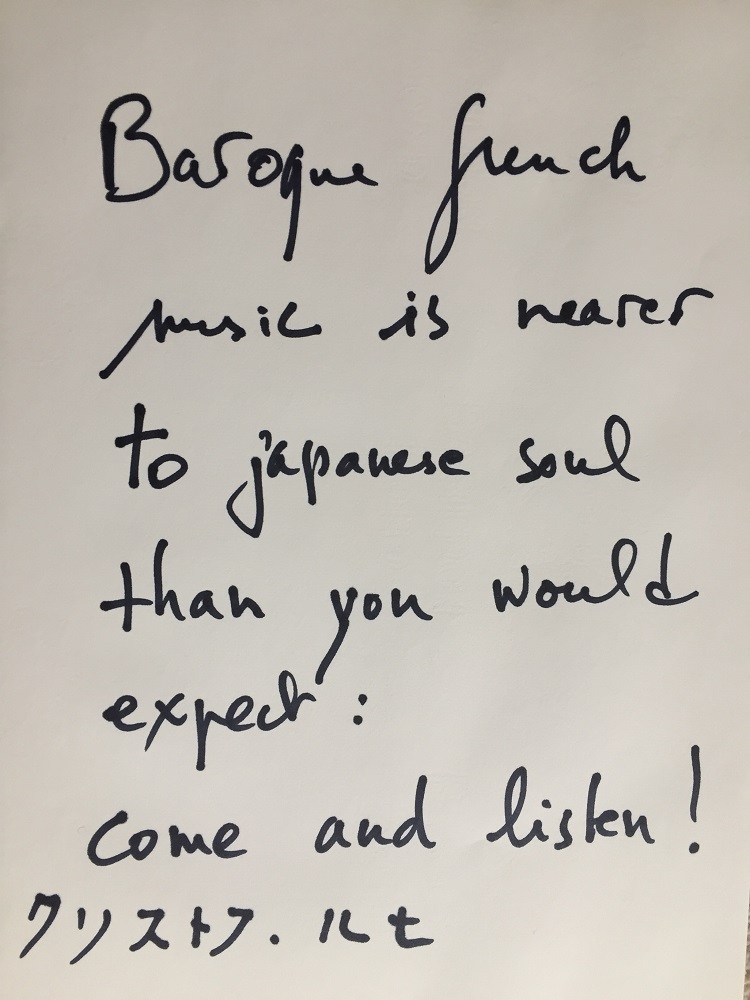 Baroque french
music is nearer
to japanese soul
than you would
expect :
come and listen !
クリストフ. ルセ